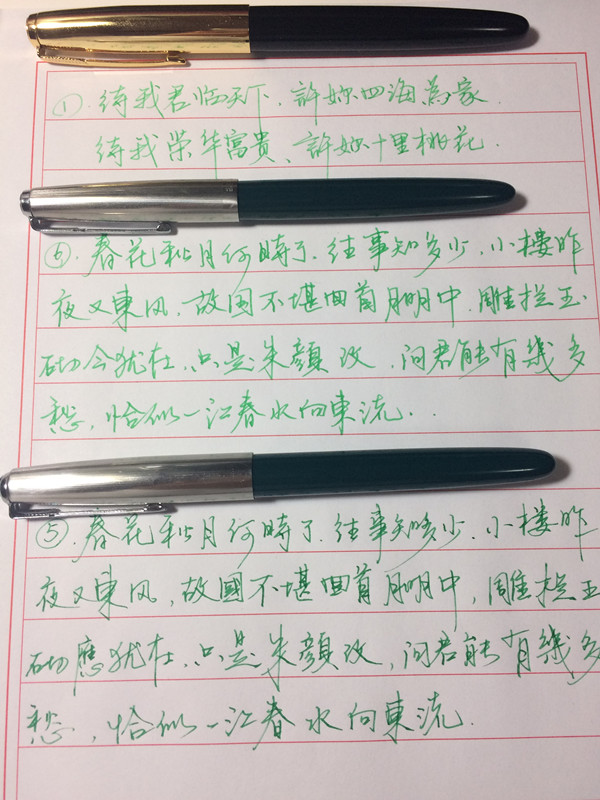 ①.待我君临天下.許妳四海為家
待我荣华富貴、許妳十里桃花.
⑥.春花秋月何時了.往事知多少.小樓昨
夜又東风.故国不堪回首月明中.雕拦玉
砌今犹在.只是朱顔改.问君能有幾多
愁.恰似一江春水向東流..
⑤.春花秋月何時了.往事知多少.小樓昨
夜又東风,故國不堪回首月明中,雕拦玉
砌應犹在.只是朱顔改,问君能有幾多
愁,恰似一江春水向東流.